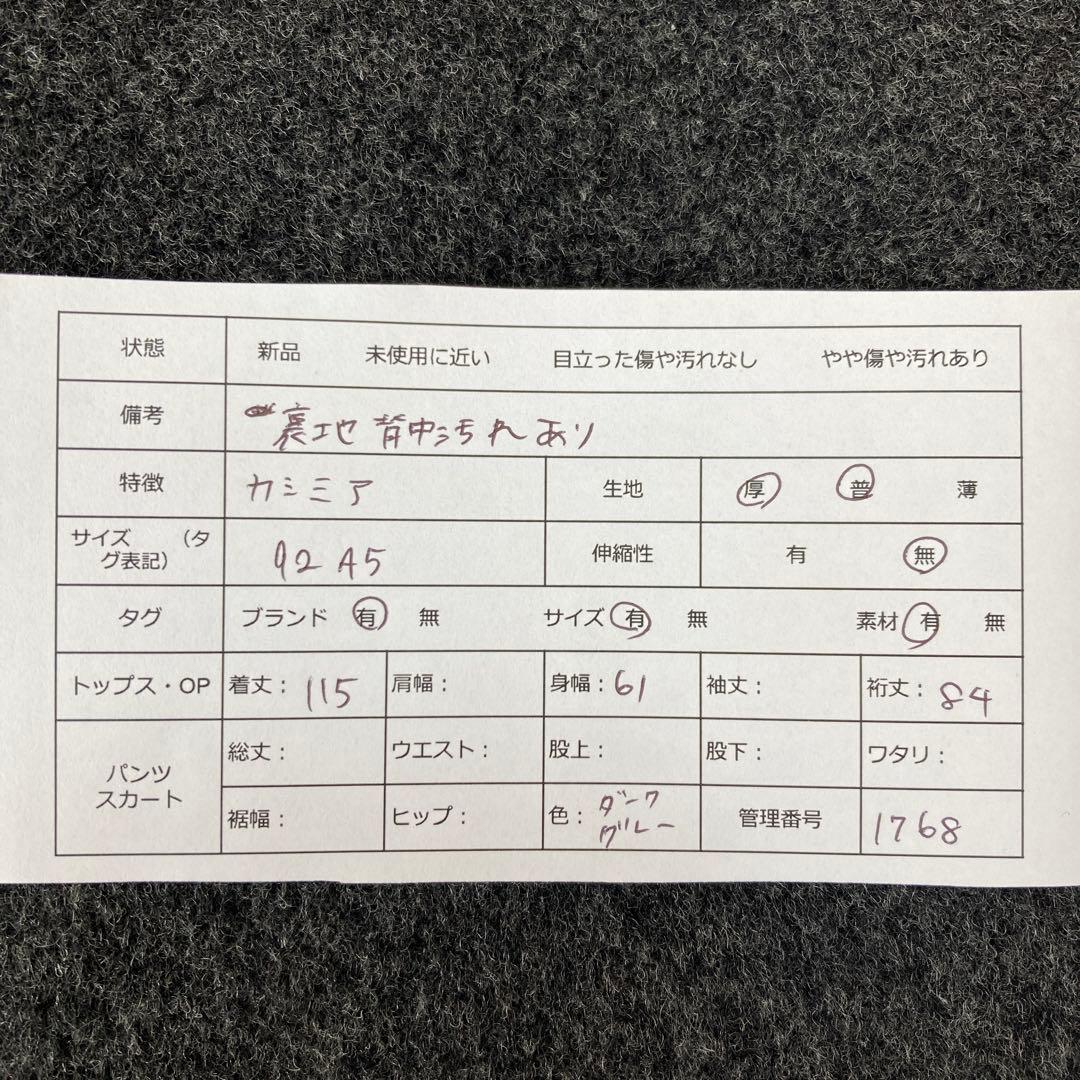 状態 新品 未使用に近い 目立った傷や汚れなし やや傷や汚れあり
備考 裏地 背中汚れあり
特徴 カシミア 生地 厚 普 薄
サイズ （タ
グ表記） 92 A5 伸縮性 有 無
タグ ブランド 有 無 サイズ 有 無 素材 有 無
トップス・OP 着丈： 115 肩幅： 身幅： 61 袖丈： 裄丈： 84
パンツ
スカート
総丈： ウエスト： 股上： 股下： ワタリ：
裾幅： ヒップ： 色： ダーク
グレー
管理番号 1768